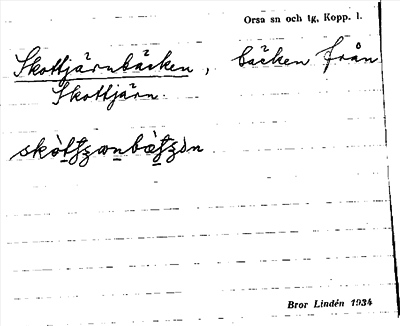 Orsa sn och tg, Kopp. l.
Skottjärnbäcken, bäcken från
Skottjärn
Bror Lindén 1934